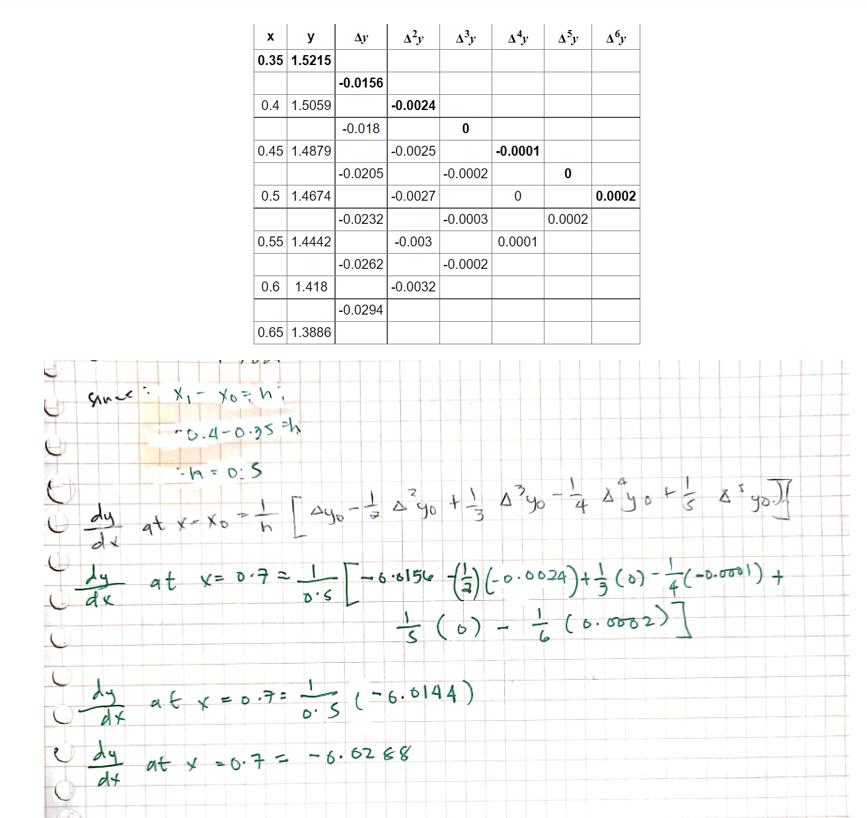 x y Δy Δ²y Δ³y Δ⁴y Δ⁵y Δ⁶y
0.35 1.5215
-0.0156
0.4 1.5059 -0.0024
-0.018 0
0.45 1.4879 -0.0025 -0.0001
-0.0205 -0.0002 0
0.5 1.4674 -0.0027 0 0.0002
-0.0232 -0.0003 0.0002
0.55 1.4442 -0.003 0.0001
-0.0262 -0.0002
0.6 1.418 -0.0032
-0.0294
0.65 1.3886
since : x₁ - x₀ = h ;
-0.4-0.35 =h
h = 0.5
dy/dx at x-x₀ = 1/h [ Δy₀ - 1/2 Δ²y₀ + 1/3 Δ³y₀ - 1/4 Δ⁴y₀ + 1/5 Δ⁵y₀ ]
dy/dx at x= 0.7 = 1/0.5 [ -0.0156 - (1/2)(-0.0024) + 1/3 (0) - 1/4 (-0.0001) +
1/5 (0) - 1/6 (0.0002) ]
dy/dx at x = 0.7 = 1/0.5 ( -0.0144 )
dy/dx at x = 0.7 = -0.0288